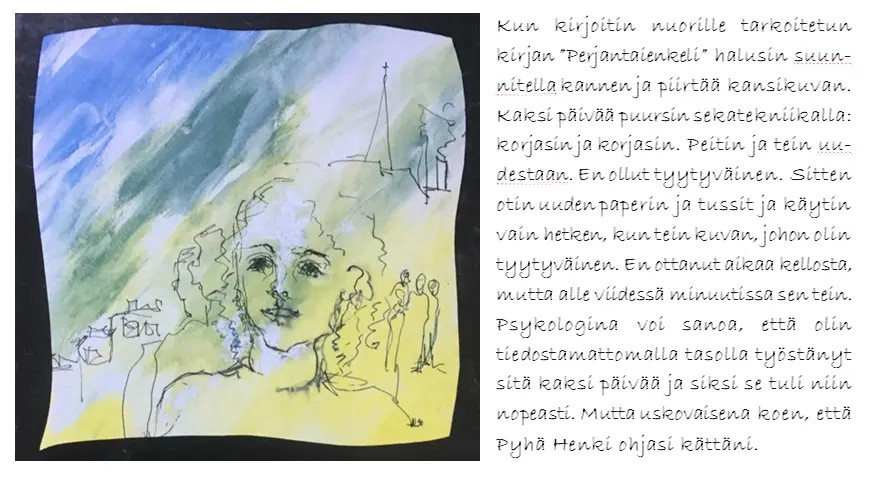 Kun kirjoitin nuorille tarkoitetun
kirjan "Perjantaienkeli" halusin suun-
nitella kannen ja piirtää kansikuvan.
Kaksi päivää puursin sekatekniikalla:
korjasin ja korjasin. Peitin ja tein uu-
destaan. En ollut tyytyväinen. Sitten
otin uuden paperin ja tussit ja käytin
vain hetken, kun tein kuvan, johon olin
tyytyväinen. En ottanut aikaa kellosta,
mutta alle viidessä minuutissa sen tein.
Psykologina voi sanoa, että olin
tiedostamattomalla tasolla työstänyt
sitä kaksi päivää ja siksi se tuli niin
nopeasti. Mutta uskovaisena koen, että
Pyhä Henki ohjasi kättäni.